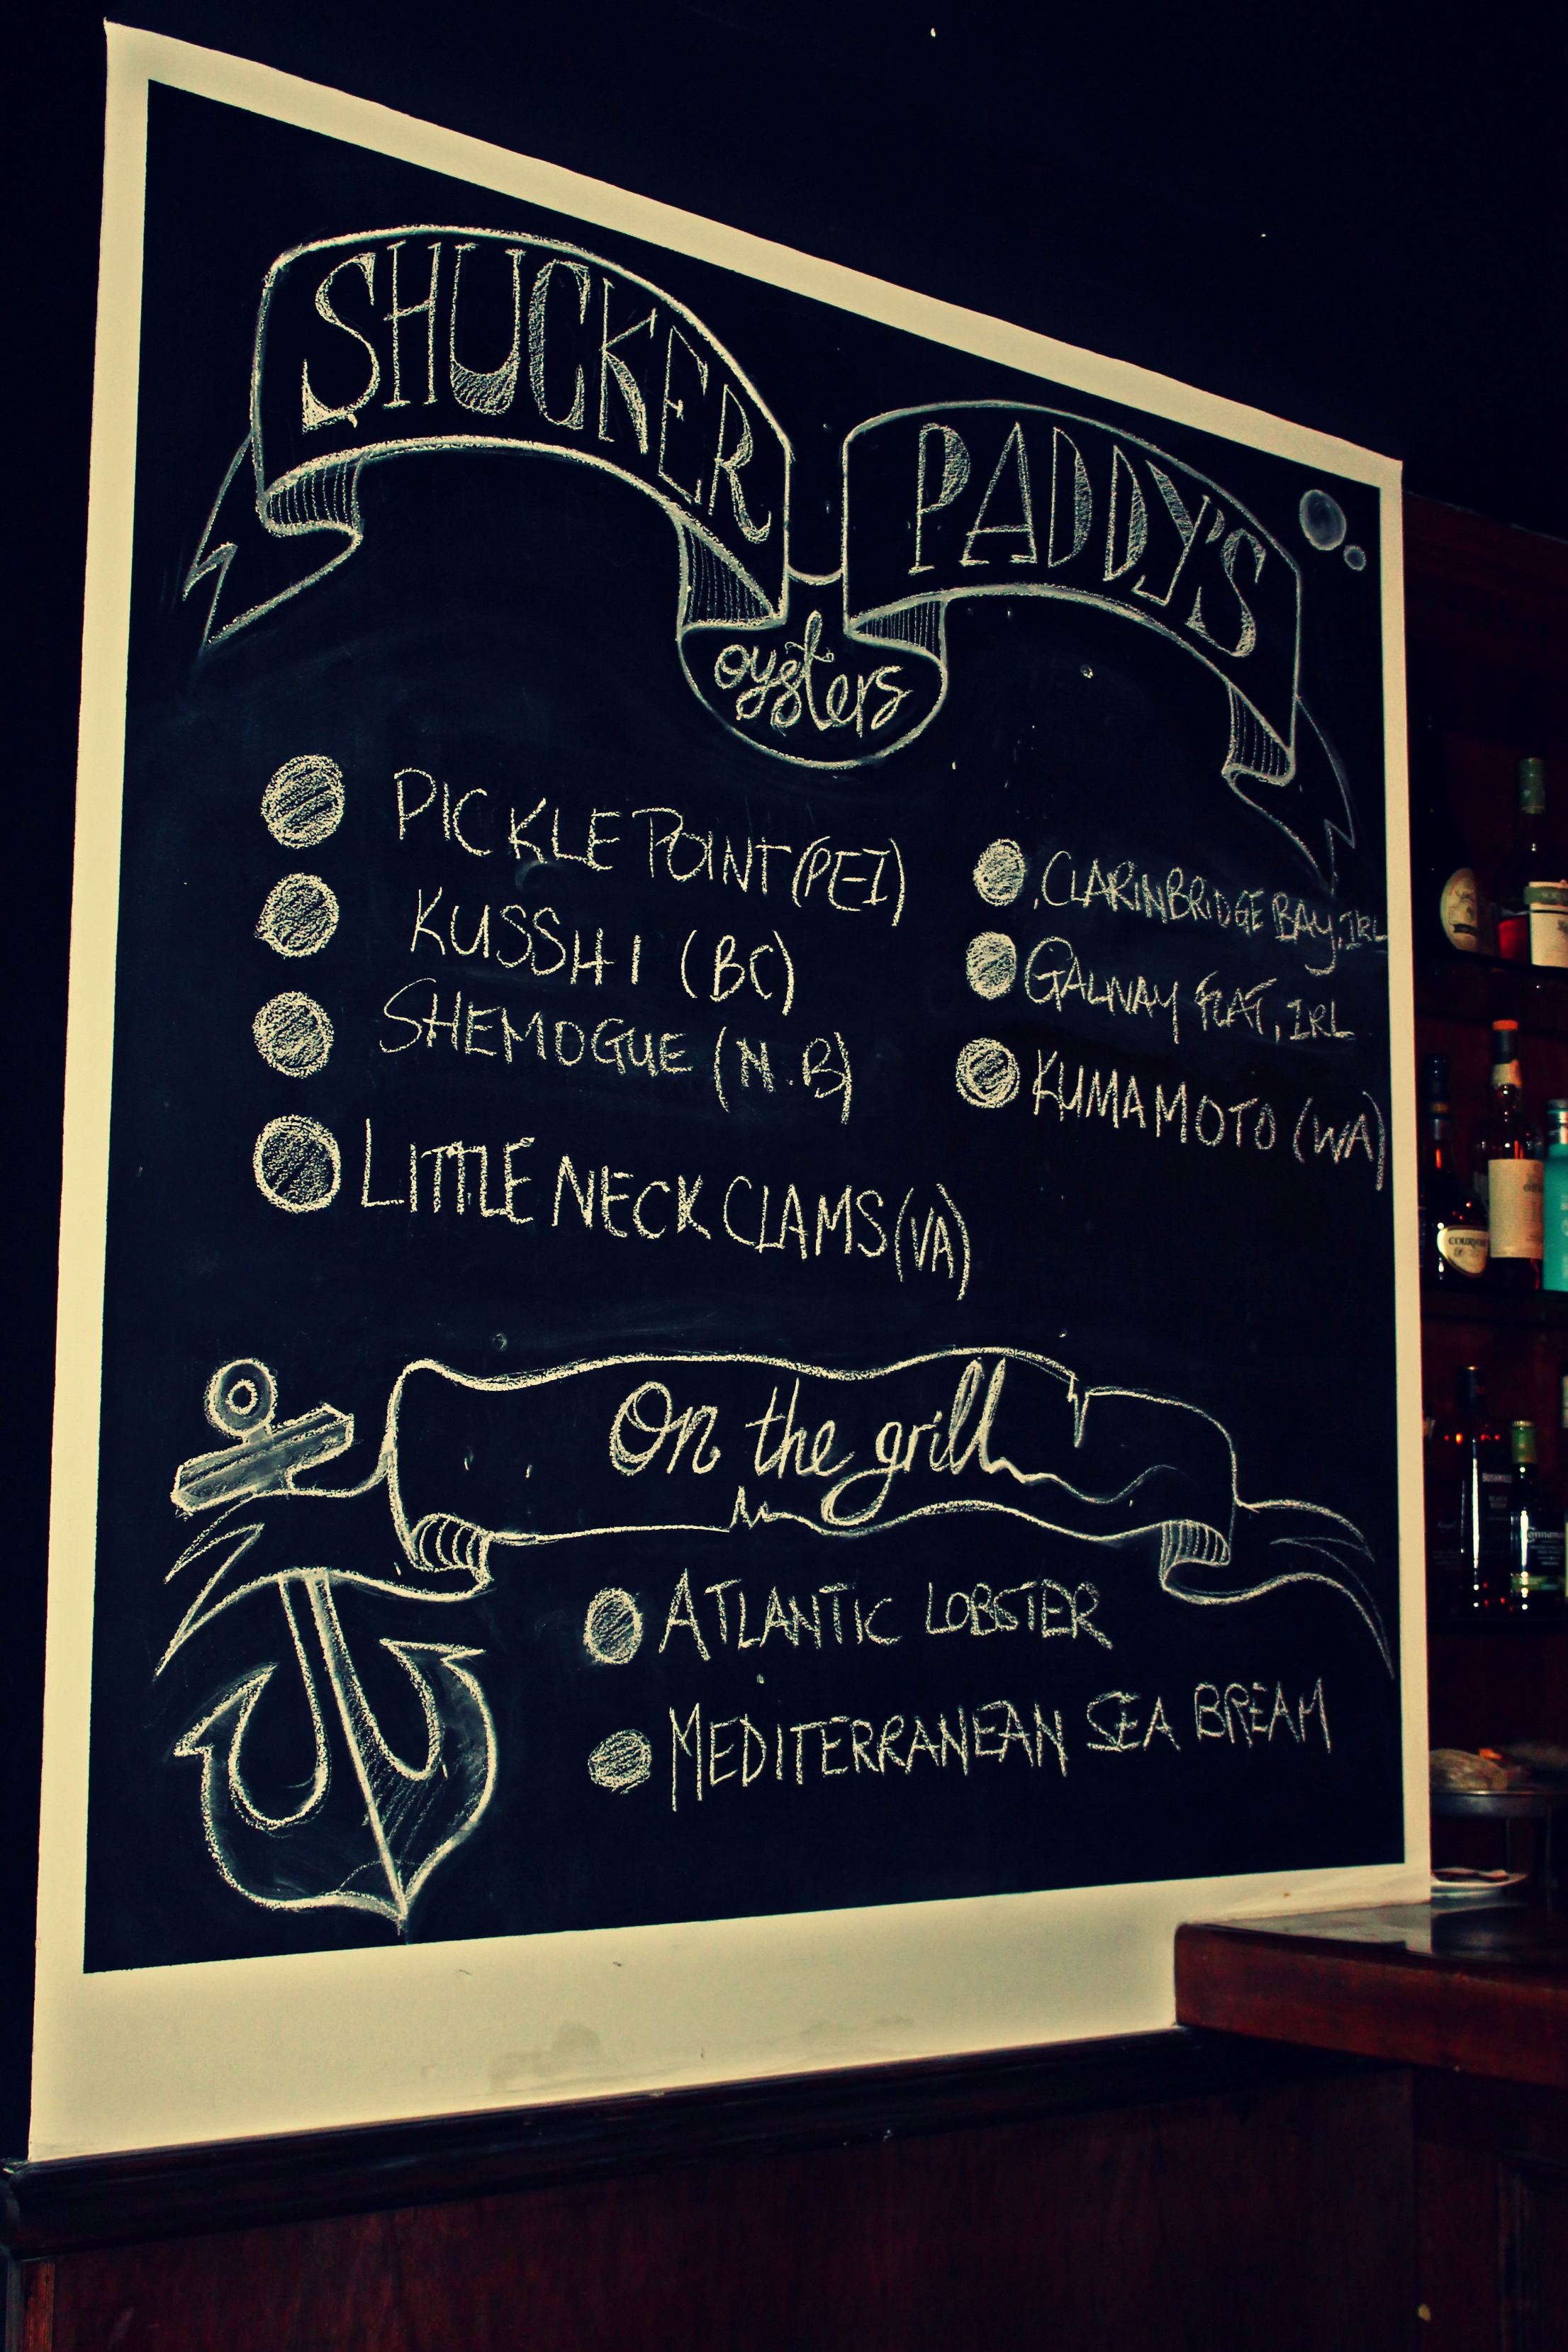 SHUCKER PADDY'S
oysters
PICKLE POINT (PEI)
KUSSHI (BC)
SHEMOGUE (N.B)
LITTLE NECK CLAMS (VA)
CLARINBRIDGE BAY, IRL
GALWAY FLAT, IRL
KUMAMOTO (WA)
On the grill
ATLANTIC LOBSTER
MEDITERRANEAN SEA BREAM